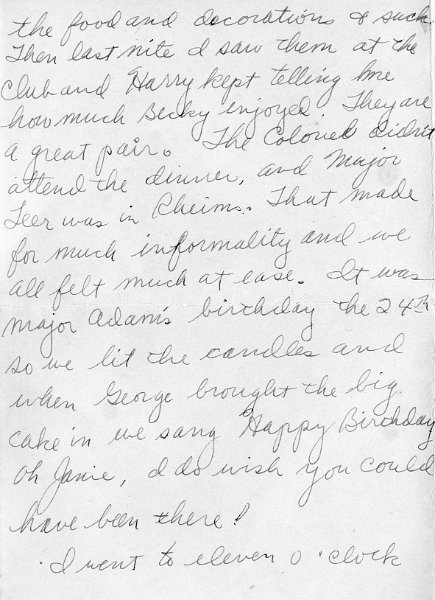 the food and decorations & such.
Then last nite I saw them at the
Club and Harry kept telling me
how much Becky enjoyed. They are
a great pair. The Colonel didn't
attend the dinner, and Major
Teer was in Rheims. That made
for much informality and we
all felt much at ease. It was
Major Adam's birthday the 24th
so we lit the candles and
when George brought the big
cake in we sang Happy Birthday
Oh Janie, I do wish you could
have been there!
I went to eleven o'clock